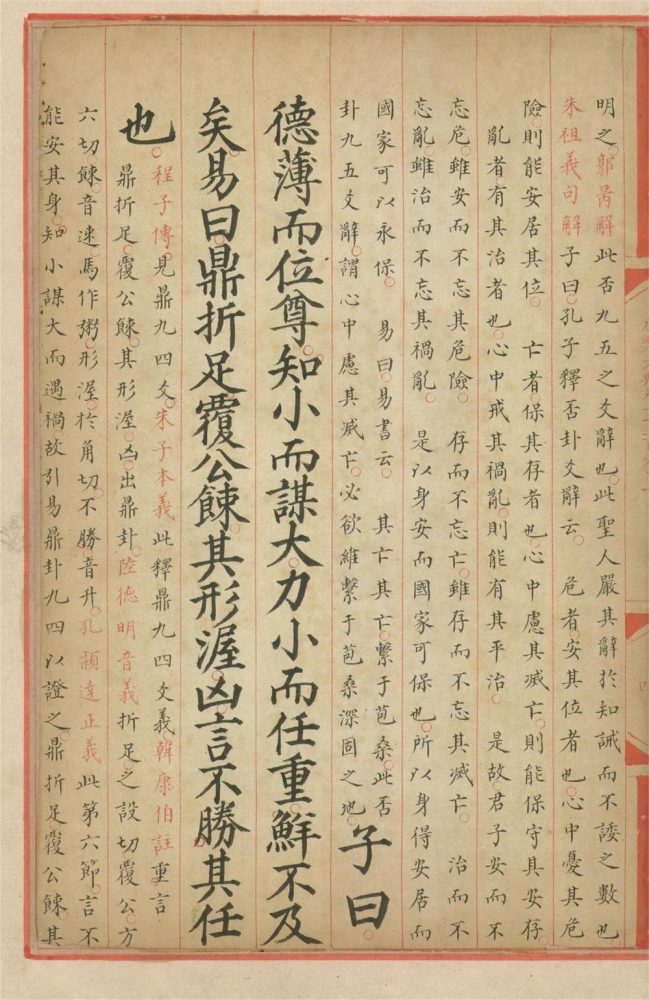 明之郭昺解此否九五之爻辭也此聖人嚴其辭於知誡而不諉之數也
朱祖義句解子曰孔子釋否卦爻辭云危者安其位者也心中憂其危
險則能安居其位亡者保其存者也心中慮其滅亡則能保守其安存
亂者有其治者也心中戒其禍亂則能有其平治是故君子安而不
忘危雖安而不忘其危險存而不忘亡雖存而不忘其滅亡治而不
忘亂雖治而不忘其禍亂是以身安而國家可保也所以身得安居而
國家可以永保易曰易書云其亡其亡繫于苞桑此否
卦九五爻辭謂心中慮其滅亡必欲維繫于苞桑深固之地子曰
德薄而位尊知小而謀大力小而任重鮮不及
矣易曰鼎折足覆公餗其形渥凶言不勝其任
也程子傳見鼎九四爻朱子本義此釋鼎九四爻義韓康伯註重言
鼎折足覆公餗其形渥凶出鼎卦陸德明音義折足之設切覆公方
六切餗音速馬作粥形渥於角切不勝音升孔穎達正義此第六節言不
能安其身知小謀大而遇禍故引易鼎卦九四以證之鼎折足覆公餗其